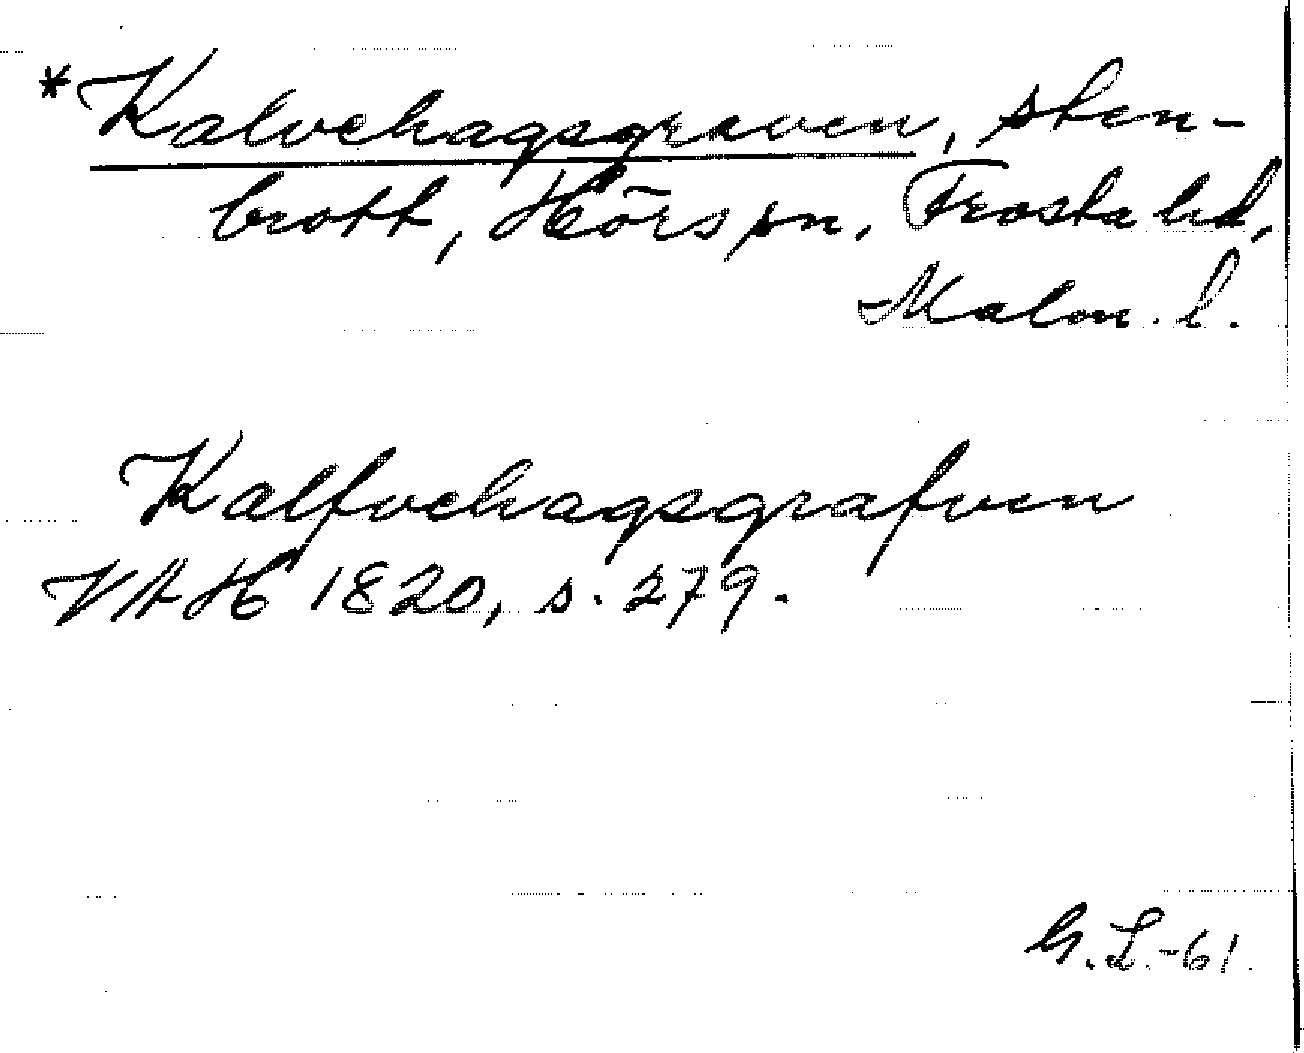 *Kalvehagsgraven, sten-
brott, Hörs sn, Frosta hd,
Malm. l.
Kalfvehagsgrafven
VAH 1820, s. 279.
G. L.-61.